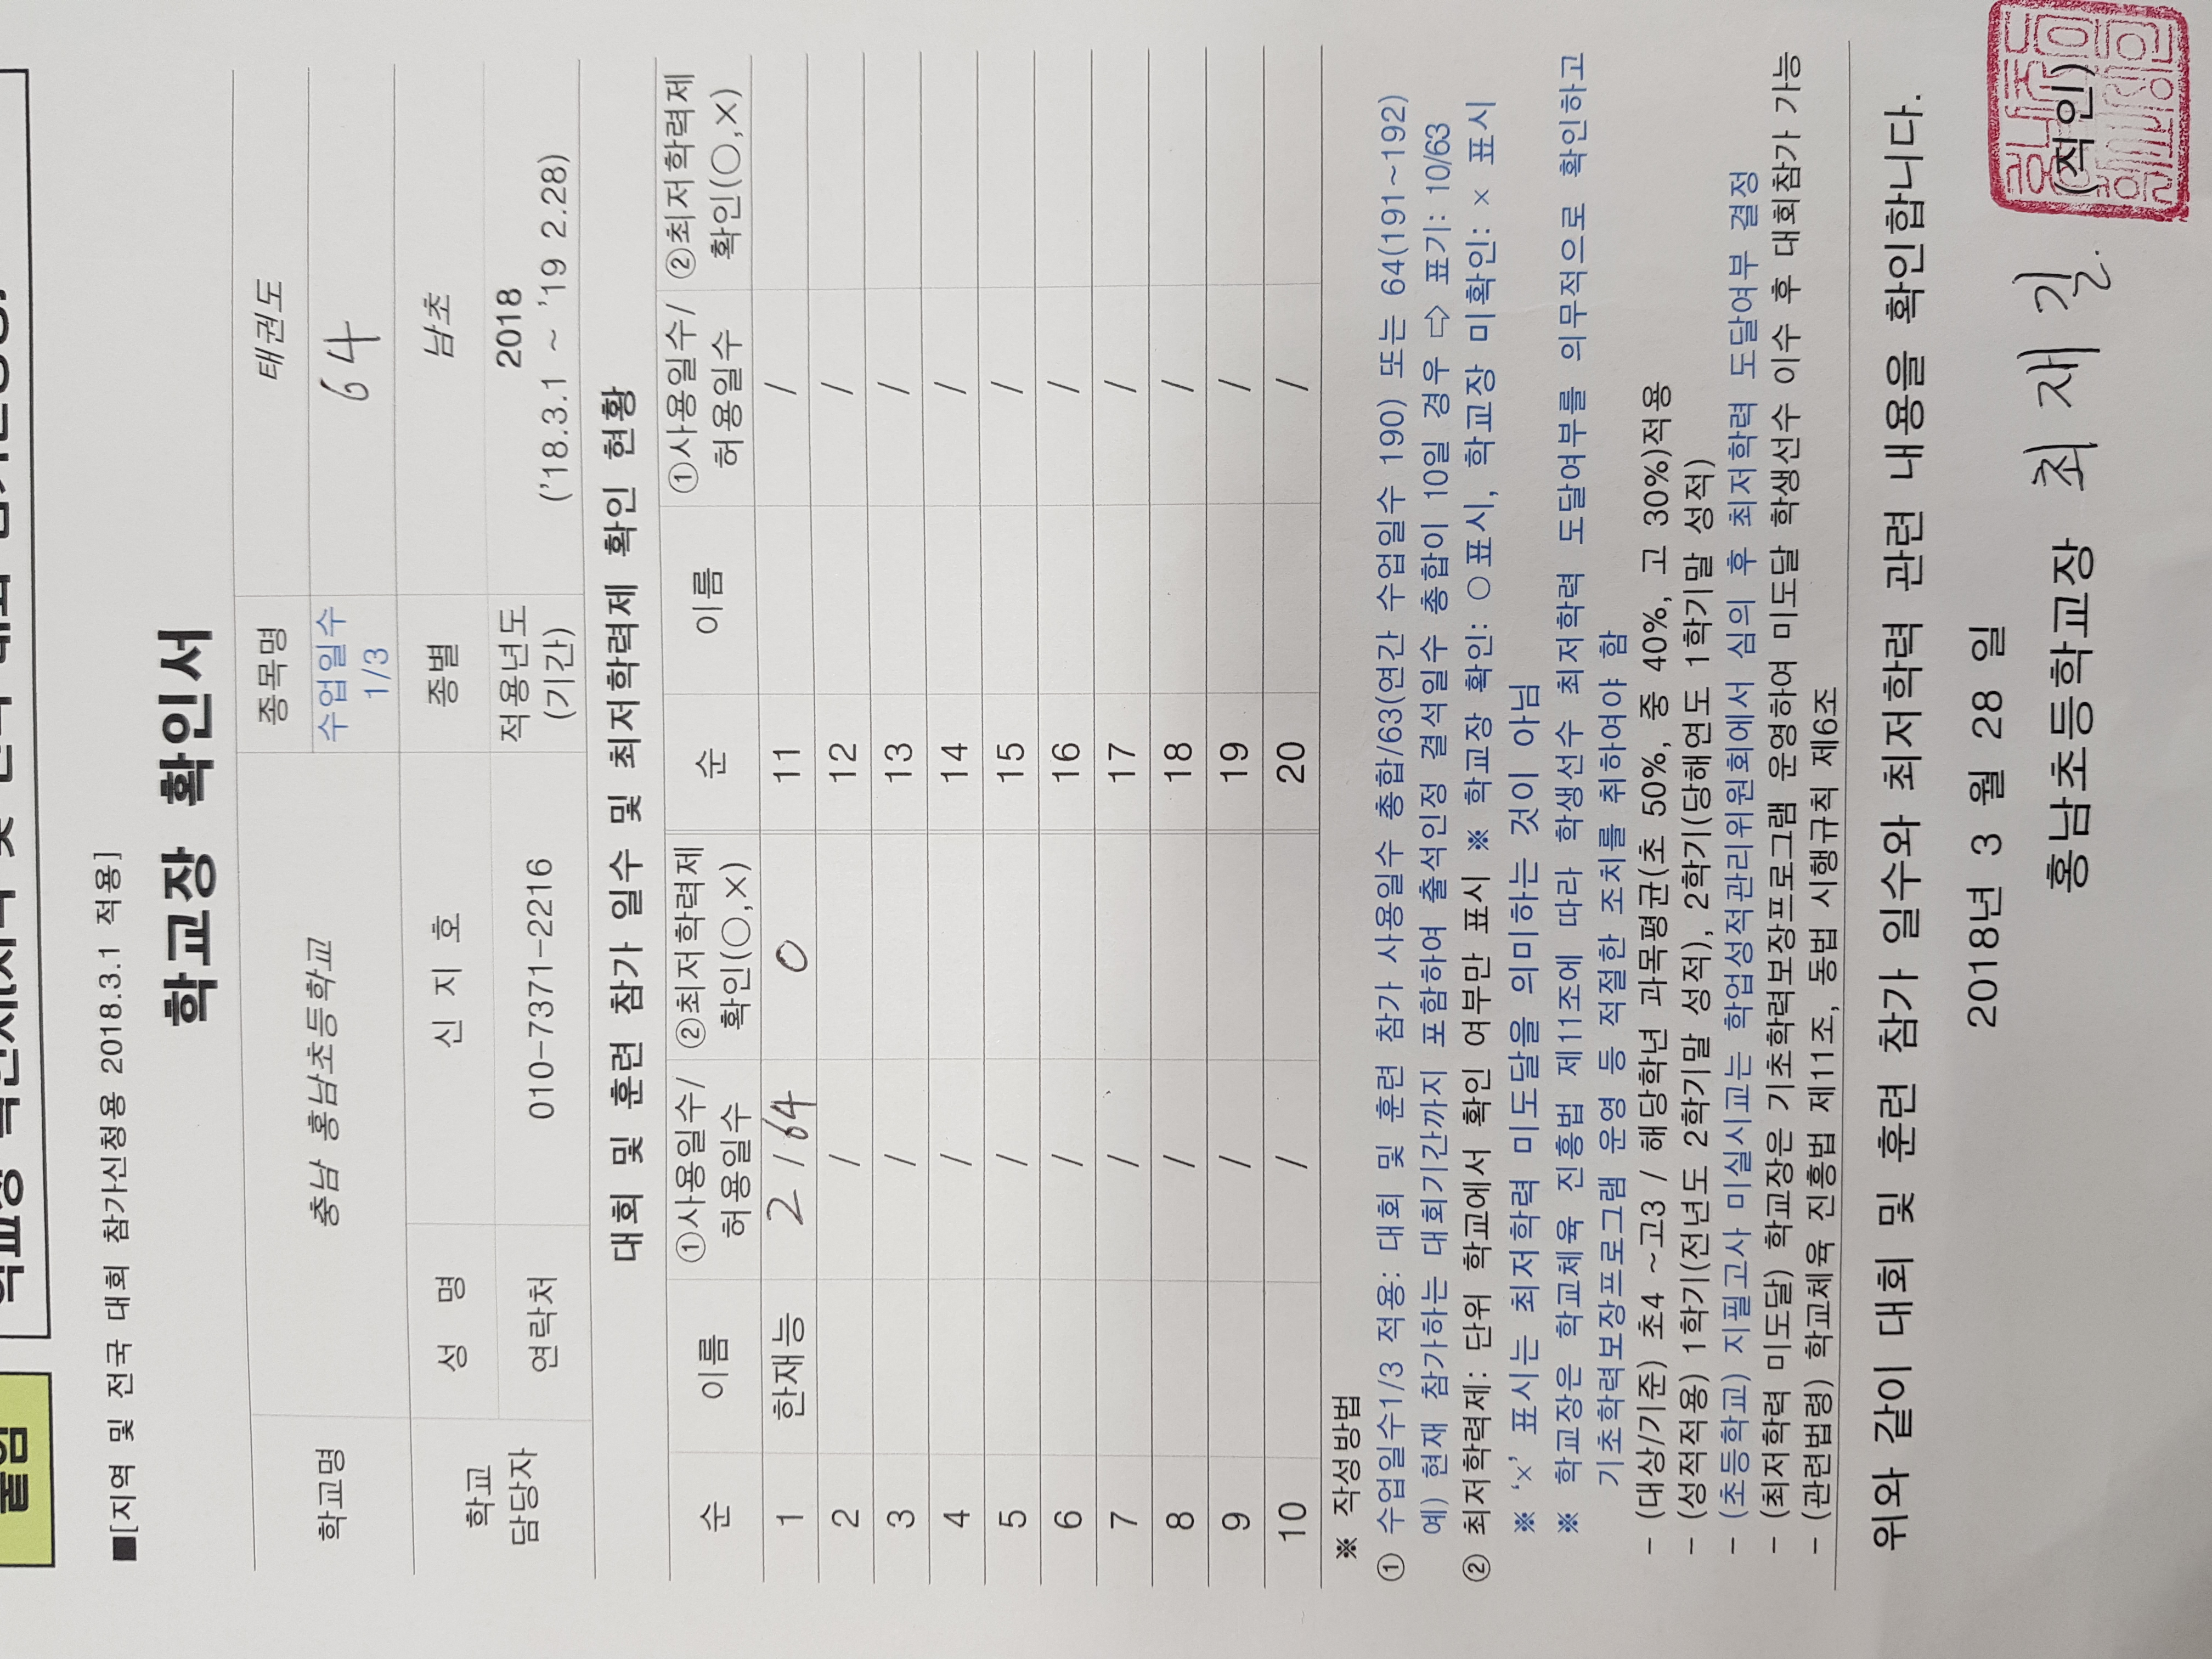 붙임
■[지역 및 전국 대회 참가신청용 2018.3.1 적용]
학교장 확인서
학교명 충남 홍남초등학교 종목명 태권도
수업일수 1/3 64
학교 담당자 성 명 신 지 호 종별 남초
연락처 010-7371-2216 적용년도 (기간) 2018 ('18.3.1 ~ '19 2.28)
대회 및 훈련 참가 일수 및 최저학력제 확인 현황
순 이름 ①사용일수/ 허용일수 ②최저학력제 확인(○,×) 순 이름 ①사용일수/ 허용일수 ②최저학력제 확인(○,×)
1 한재능 2 / 64 0 11 /
2 / 12 /
3 / 13 /
4 / 14 /
5 / 15 /
6 / 16 /
7 / 17 /
8 / 18 /
9 / 19 /
10 / 20 /
※ 작성방법
① 수업일수1/3 적용: 대회 및 훈련 참가 사용일수 총합/63(연간 수업일수 190) 또는 64(191~192)
예) 현재 참가하는 대회기간까지 포함하여 출석인정 결석일수 총합이 10일 경우 ⇨ 표기: 10/63
② 최저학력제: 단위 학교에서 확인 여부만 표시 ※ 학교장 확인: ○표시, 학교장 미확인: × 표시
※ '×' 표시는 최저학력 미도달을 의미하는 것이 아님
※ 학교장은 학교체육 진흥법 제11조에 따라 학생선수 최저학력 도달여부를 의무적으로 확인하고
기초학력보장프로그램 운영 등 적절한 조치를 취하여야 함
- (대상/기준) 초4 ~고3 / 해당학년 과목평균(초 50%, 중 40%, 고 30%)적용
- (성적적용) 1학기(전년도 2학기말 성적), 2학기(당해연도 1학기말 성적)
- (초등학교) 지필고사 미실시교는 학업성적관리위원회에서 심의 후 최저학력 도달여부 결정
- (최저학력 미도달) 학교장은 기초학력보장프로그램 운영하여 미도달 학생선수 이수 후 대회참가 가능
- (관련법령) 학교체육 진흥법 제11조, 동법 시행규칙 제6조
위와 같이 대회 및 훈련 참가 일수와 최저학력 관련 내용을 확인합니다.
2018년 3 월 28 일
홍남초등학교장 최 재 길. (직인)